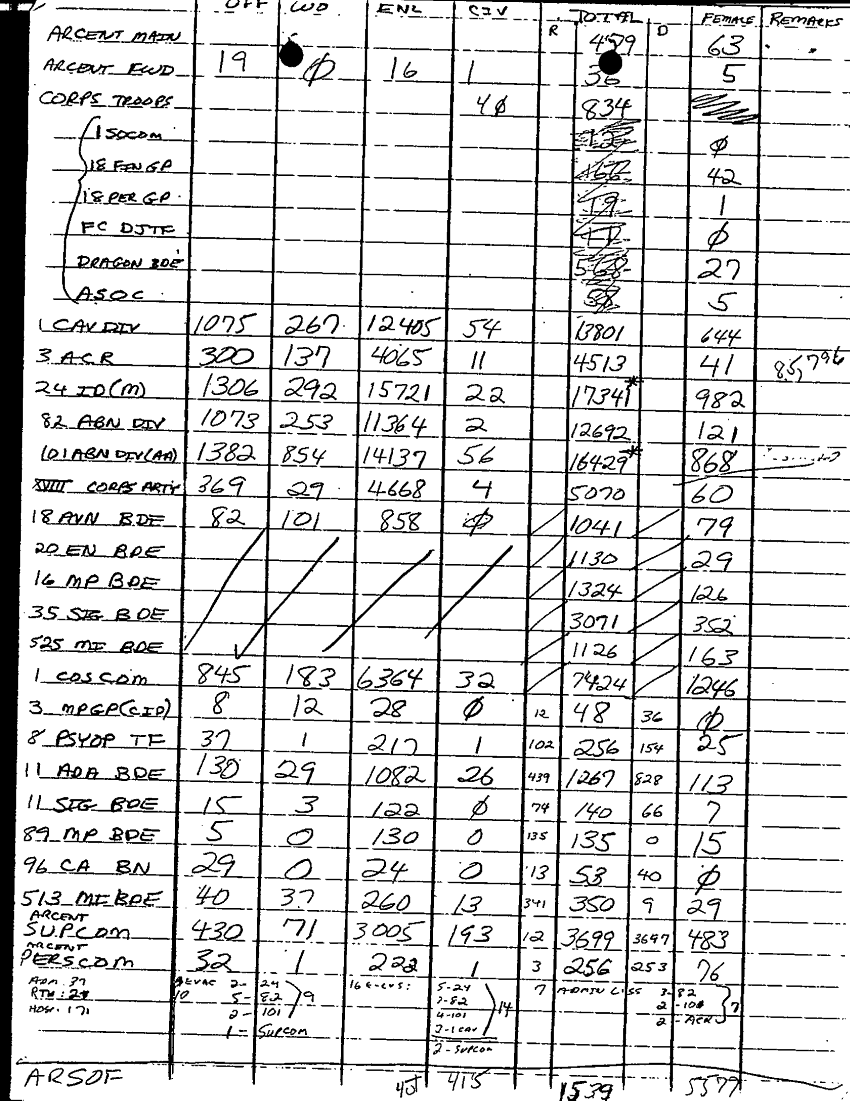 OFF WO ENL CIV R TOTAL D FEMALE REMARKS
ARCENT MAIN 479 63
ARCENT FWD 19 ∅ 16 1 36 5
CORPS TROOPS 4∅ 834
1 SOCOM ∅
18 FIN GP 42
18 PER GP 1
FC DJTF ∅
DRAGON BDE 568 27
ASOC 5
1 CAV DIV 1075 267 12405 54 13801 644
3 ACR 300 137 4065 11 4513 41 85,796
24 ID(M) 1306 292 15721 22 17341* 982
82 ABN DIV 1073 253 11364 2 12692 121
101 ABN DIV(AA) 1382 854 14137 56 16429* 868
XVIII CORPS ARTY 369 29 4668 4 5070 60
18 AVN BDE 82 101 858 ∅ 1041 79
20 EN BDE 1130 29
16 MP BDE 1324 126
35 SIG BDE 3071 352
525 MI BDE 1126 163
1 COSCOM 845 183 6364 32 7424 1246
3 MPGP(CID) 8 12 28 ∅ 12 48 36 ∅
8 PSYOP TF 37 1 217 1 102 256 154 25
11 ADA BDE 130 29 1082 26 439 1267 828 113
11 SIG BDE 15 3 122 ∅ 74 140 66 7
89 MP BDE 5 0 130 0 135 135 0 15
96 CA BN 29 0 24 0 13 53 40 ∅
513 MI BDE 40 37 260 13 341 350 9 29
ARCENT
SUPCOM 430 71 3005 193 12 3699 3697 483
ARCENT
PERSCOM 32 1 222 1 3 256 253 76
ADM: 37 2- 24 5-24 7 3-82
RTN: 24 10 5- 82 9 7-82 2-101 7
HOSP: 171 2- 101 4-101 14 2-ACR
1= SUPCOM 2-1 CAV
2-SUPCOM
ARSOF 415 1539 5577